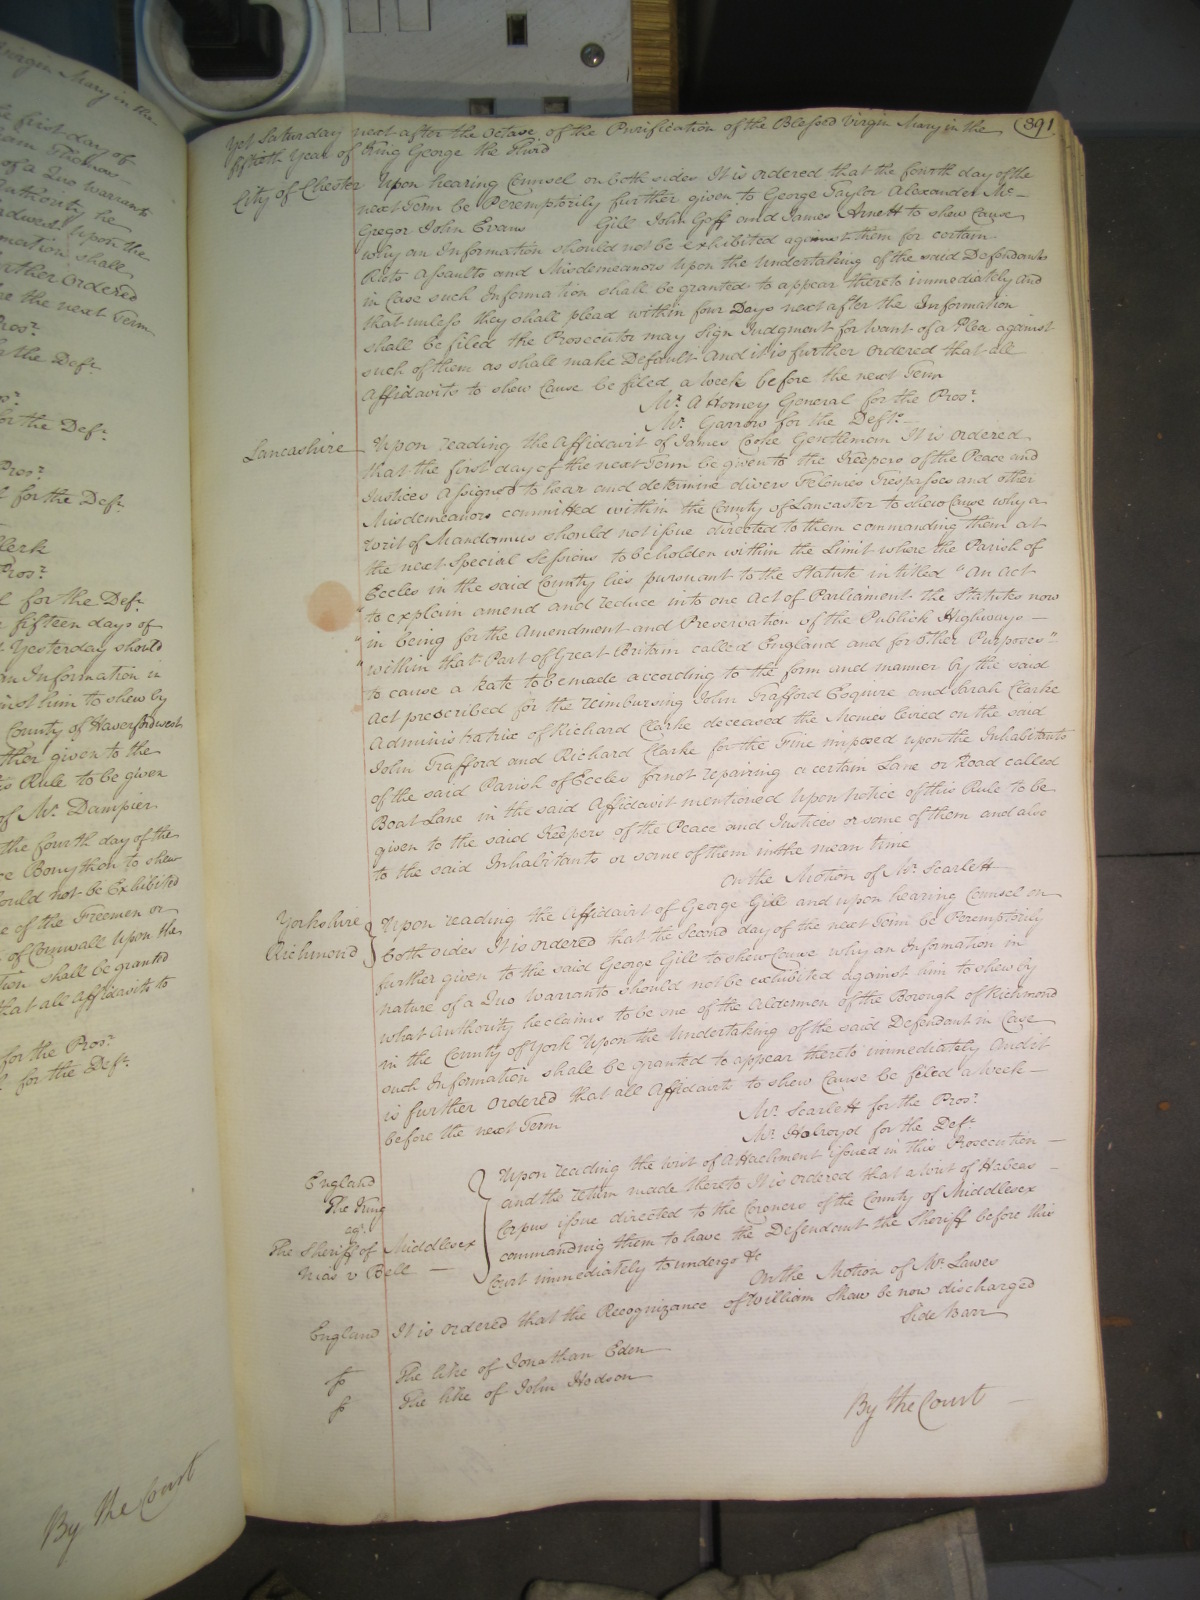 Virgin Mary in the
first day of
of a Quo Warranto
Authority he
upon the
shall
further Ordered
before the next Term
Pros.r
the Def.t
for the Def.t
Pros.r
for the Def.t
Clerk
Pros.r
for the Def.t
fifteen days of
Yesterday should
an Information in
against him to shew by
County of Haverfordwest
further given to the
Rule to be given
of Mr. Dampier
the fourth day of the
Bonython to shew
should not be Exhibited
of the Freemen or
of Cornwall Upon the
shall be granted
that all Affidavits to
for the Pros.r
for the Def.t
By the Court
391
Yet Saturday next after the Octave of the Purification of the Blessed Virgin Mary in the
fiftieth Year of King George the Third
City of Chester Upon hearing Counsel on both sides It is ordered that the fourth day of the
next Term be Peremptorily further given to George Taylor Alexander Mc-
Gregor John Evans Gill John Goff and James Arnett to shew Cause
why an Information should not be exhibited against them for certain
Riots Assaults and Misdemeanors Upon the Undertaking of the said Defendants
in Case such Information shall be granted to appear thereto immediately and
that unless they shall plead within four Days next after the Information
shall be filed the Prosecutor may sign Judgment for Want of a Plea against
such of them as shall make Default And it is further Ordered that all
Affidavits to shew Cause be filed a Week before the next Term
Mr. Attorney General for the Pros.r
Mr. Garrow for the Def.ts
Lancashire Upon reading the Affidavit of James Cooke Gentleman It is ordered
that the first day of the next Term be given to the Keepers of the Peace and
Justices Assigned to hear and determine divers Felonies Trespasses and other
Misdemeanors committed within the County of Lancaster to shew Cause why a
Writ of Mandamus should not issue directed to them commanding them at
the next Special Sessions to be holden within the Limit where the Parish of
Eccles in the said County lies pursuant to the Statute intitled "An Act
"to explain amend and reduce into one Act of Parliament the Statutes now
"in being for the Amendment and Preservation of the Publick Highways
"within that Part of Great Britain called England and for other Purposes"
to cause a Rate to be made according to the form and manner by the said
Act prescribed for the reimbursing John Trafford Esquire and Sarah Clarke
Administratrix of Richard Clarke deceased the Monies levied on the said
John Trafford and Richard Clarke for the Fine imposed upon the Inhabitants
of the said Parish of Eccles for not repairing a certain Lane or Road called
Boat Lane in the said Affidavit mentioned Upon notice of this Rule to be
given to the said Keepers of the Peace and Justices or some of them and also
to the said Inhabitants or some of them in the mean time
On the Motion of Mr. Scarlett
Yorkshire Upon reading the Affidavit of George Gill and upon hearing Counsel on
Richmond both sides It is ordered that the Second day of the next Term be Peremptorily
further given to the said George Gill to shew Cause why an Information in
nature of a Quo Warranto should not be exhibited against him to shew by
what Authority he claims to be one of the Aldermen of the Borough of Richmond
in the County of York Upon the Undertaking of the said Defendant in Case
such Information shall be granted to appear thereto immediately And it
is further Ordered that all Affidavits to shew Cause be filed a Week
before the next Term
Mr. Scarlett for the Pros.r
Mr. Holroyd for the Def.t
England
The King
ag.t
The Sheriff of Middlesex
v Bell
Upon reading the writ of Attachment issued in this Prosecution
and the return made thereto It is ordered that a Writ of Habeas
Corpus issue directed to the Coroners of the County of Middlesex
commanding them to have the Defendant the Sheriff before this
Court immediately to undergo &c
On the Motion of Mr. Lawes
England It is ordered that the Recognizance of William Shaw be now discharged
Side Barr
The like of Jonathan Eden
The like of John Hodson
By the Court